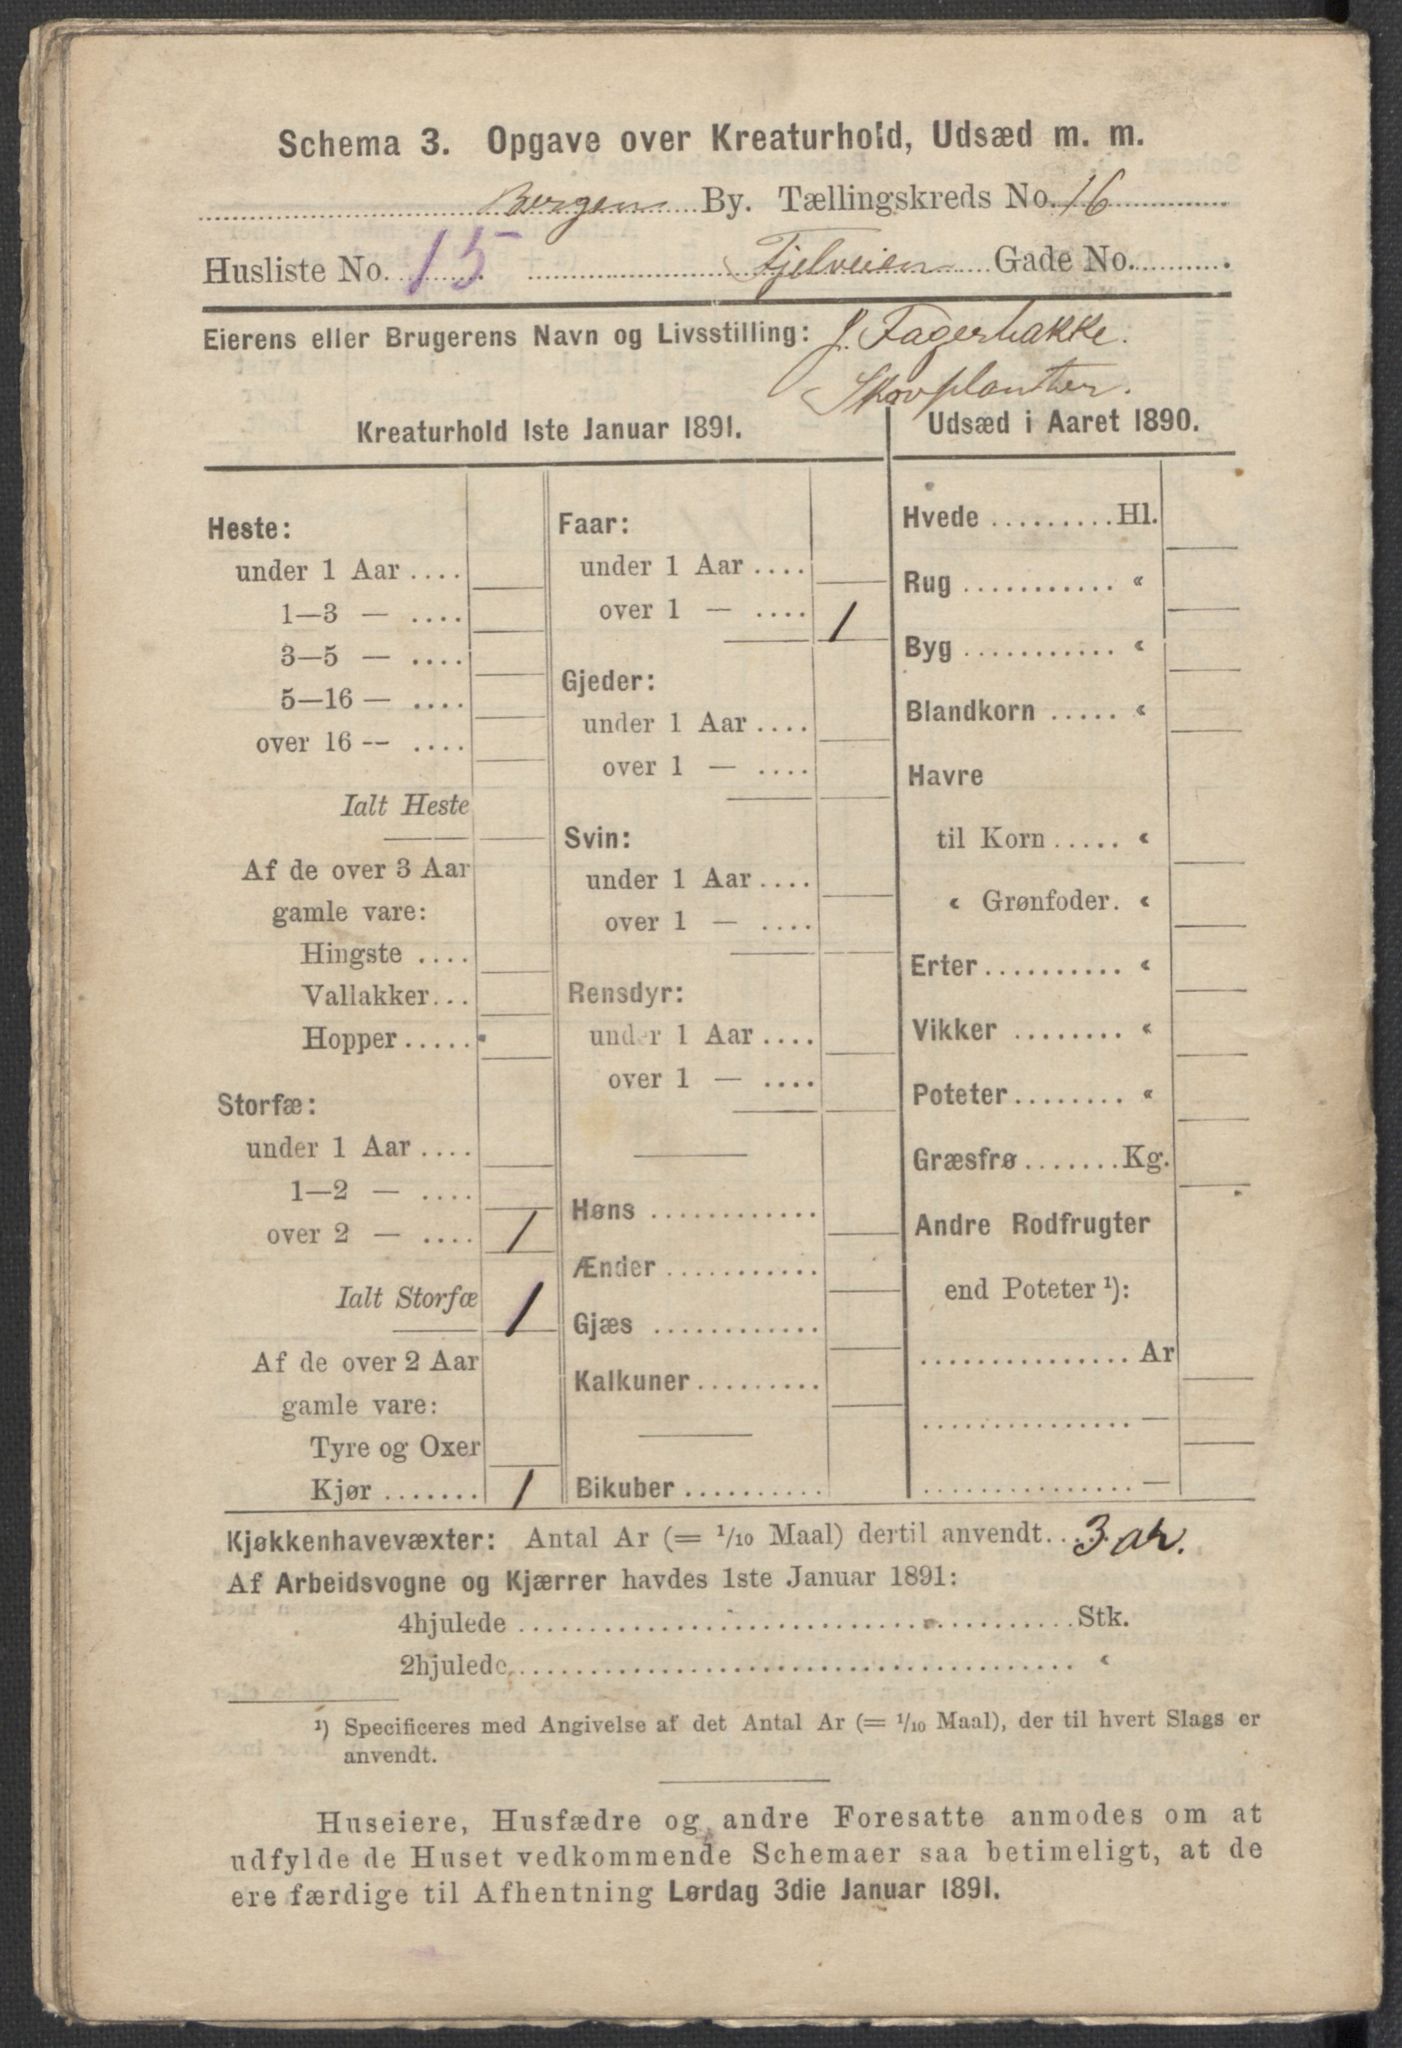 Schema 3. Opgave over Kreaturhold, Udsæd m. m.
Bergen By. Tællingskreds No. 16
Husliste No. 15 Fjelveien Gade No.
Eierens eller Brugerens Navn og Livsstilling: J. Fagerbakke.
Skovplanter.
Kreaturhold 1ste Januar 1891.
Heste:
under 1 Aar ....
1—3 — ....
3—5 — ....
5—16 — ....
over 16 — ....
Ialt Heste
Af de over 3 Aar
gamle vare:
Hingste ....
Vallakker...
Hopper .....
Storfæ:
under 1 Aar ....
1—2 — ....
over 2 — .... 1
Ialt Storfæ 1
Af de over 2 Aar
gamle vare:
Tyre og Oxer
Kjør ....... 1
Faar:
under 1 Aar ....
over 1 — .... 1
Gjeder:
under 1 Aar ....
over 1 — ....
Svin:
under 1 Aar ....
over 1 — ....
Rensdyr:
under 1 Aar ....
over 1 — ....
Høns ............
Ænder ...........
Gjæs ............
Kalkuner .........
Bikuber ..........
Udsæd i Aaret 1890.
Hvede ......... Hl.
Rug ........... «
Byg ........... «
Blandkorn ..... «
Havre
til Korn ..... «
« Grønfoder. «
Erter .......... «
Vikker ........ «
Poteter ........ «
Græsfrø ....... Kg.
Andre Rodfrugter
end Poteter ¹):
............... Ar
............... —
............... —
Kjøkkenhavevæxter: Antal Ar (= 1/10 Maal) dertil anvendt... 3 ar.
Af Arbeidsvogne og Kjærrer havdes 1ste Januar 1891:
4hjulede ........................................ Stk.
2hjulede ........................................ «
¹) Specificeres med Angivelse af det Antal Ar (= 1/10 Maal), der til hvert Slags er
anvendt.
Huseiere, Husfædre og andre Foresatte anmodes om at
udfylde de Huset vedkommende Schemaer saa betimeligt, at de
ere færdige til Afhentning Lørdag 3die Januar 1891.